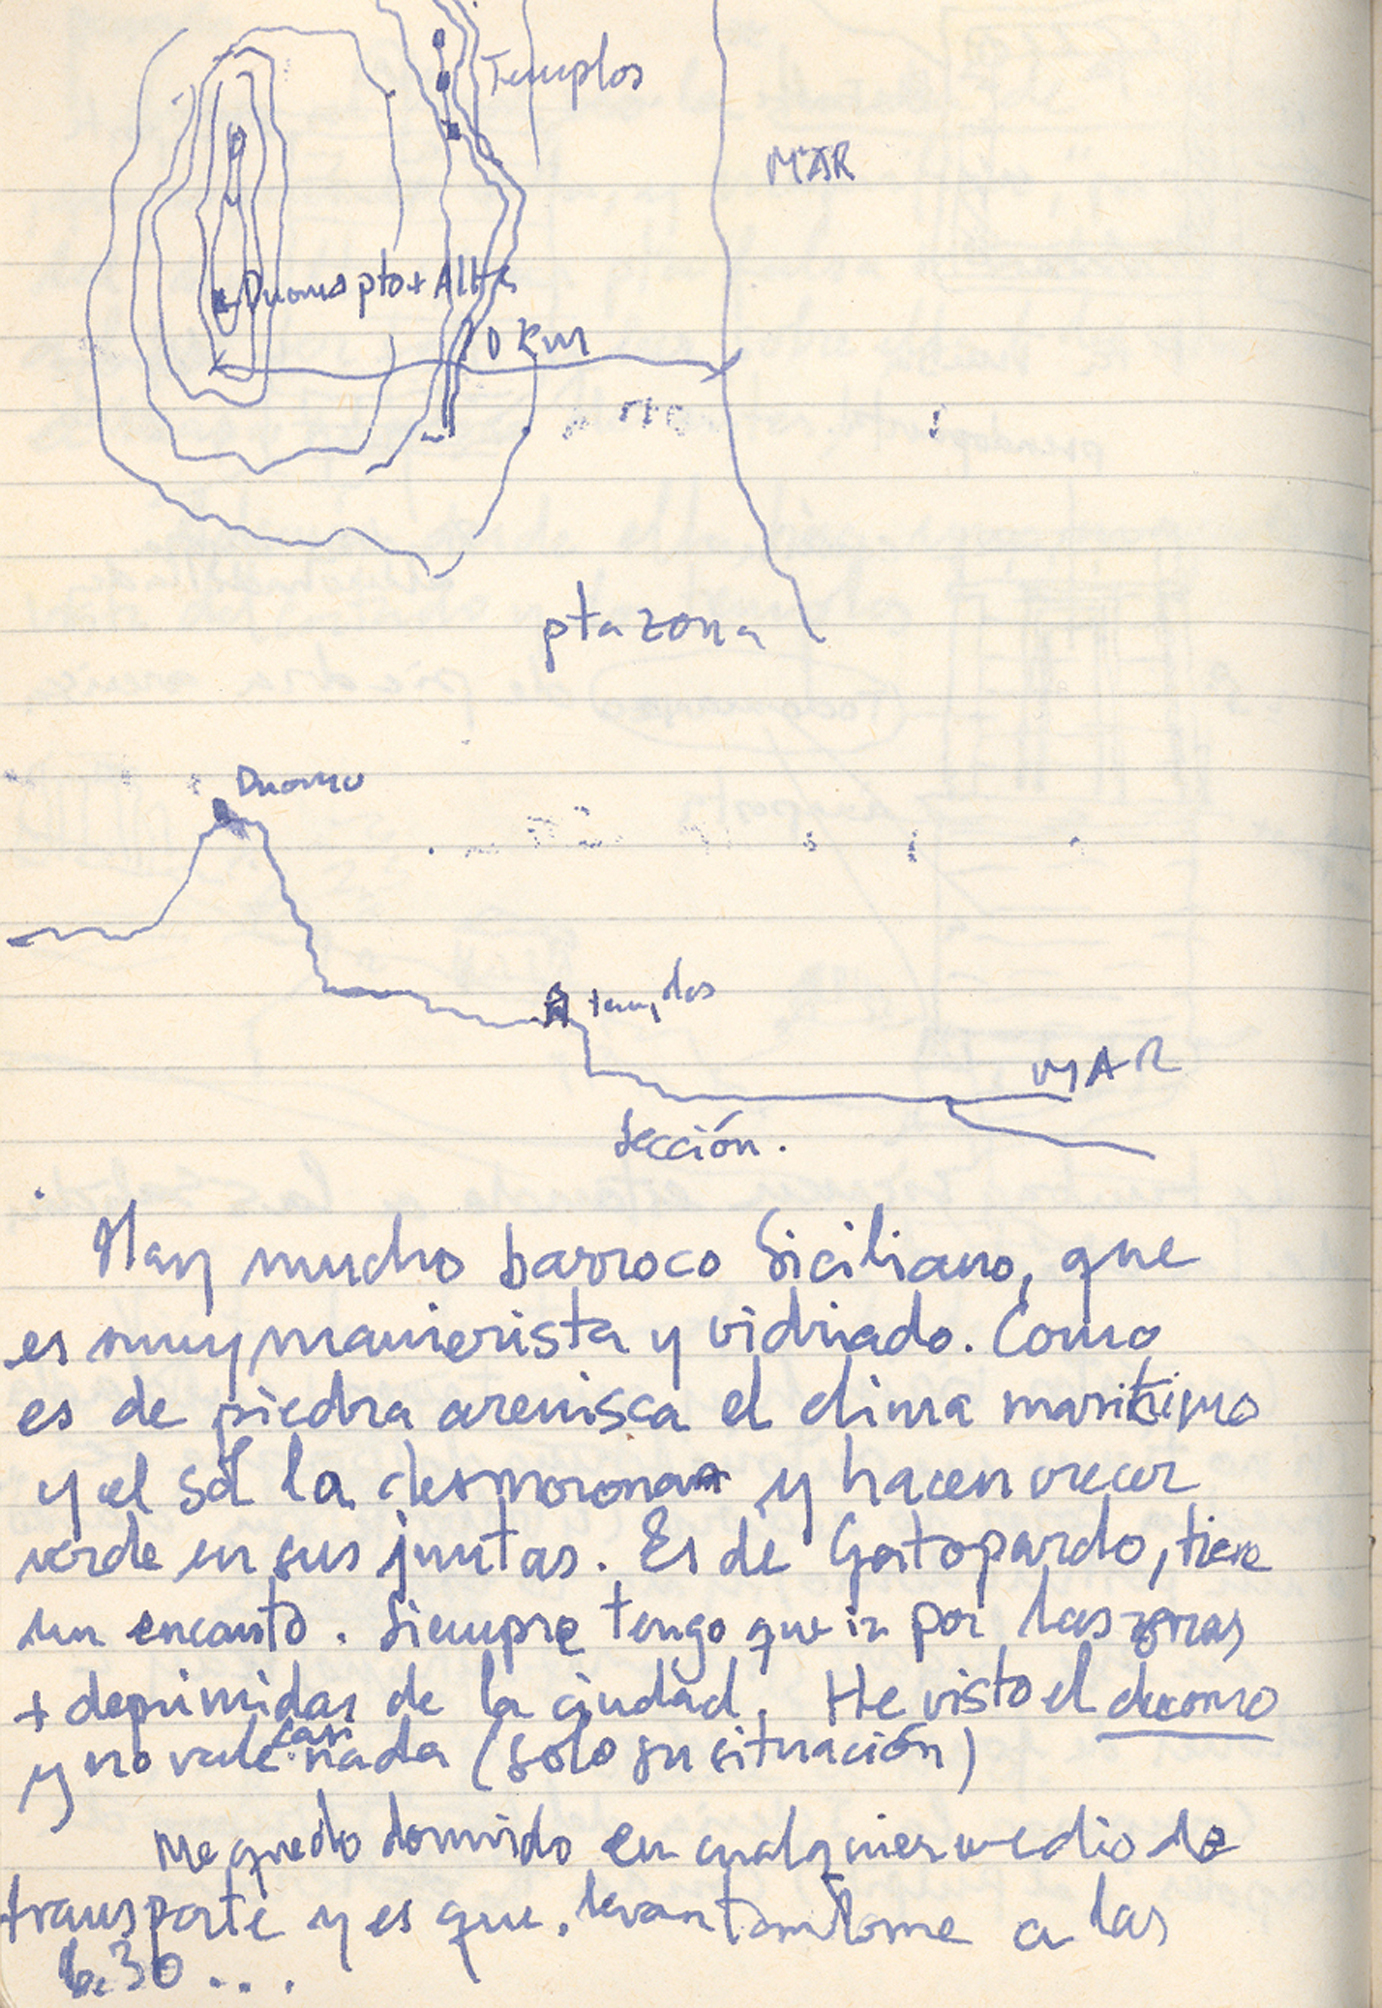 Templos
MAR
Duomo pto + Alto
10 Km
pta zona
Duomo
templos
MAR
Sección.
Hay mucho barroco Siciliano, que
es muy manierista y vidriado. Como
es de piedra arenisca el clima maritimo
y el sol la desmoronan y hacen crecer
verde en sus juntas. Es de Gatopardo, tiene
un encanto. Siempre tengo que ir por las zonas
+ deprimidas de la ciudad. He visto el duomo
y no vale casi nada (solo su situación)
Me quedo dormido en cualquier medio de
transporte y es que, levantandome a las
6.30...